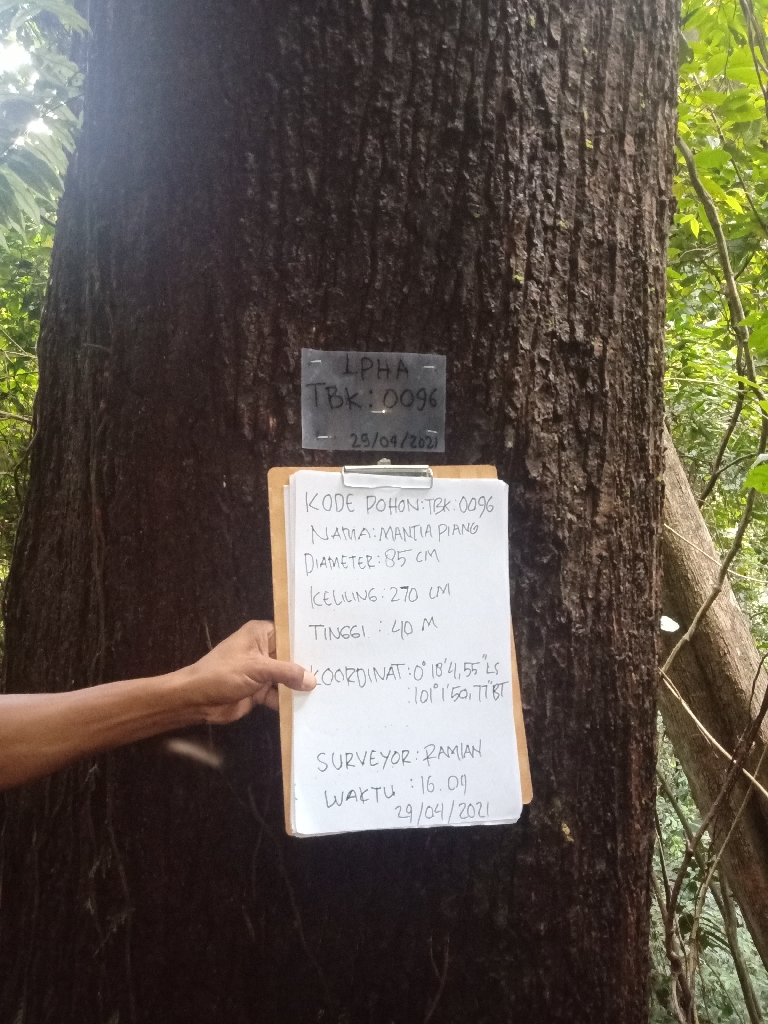 LPHA
TBK: 0096
29/04/2021
KODE POHON: TBK: 0096
NAMA: MANTIA PIANG
DIAMETER: 85 CM
KELILING: 270 CM
TINGGI : 40 M
KOORDINAT: 0° 18' 4,55" LS
: 101° 1' 50,77" BT
SURVEYOR: RAMIAN
WAKTU : 16.07
29/04/2021